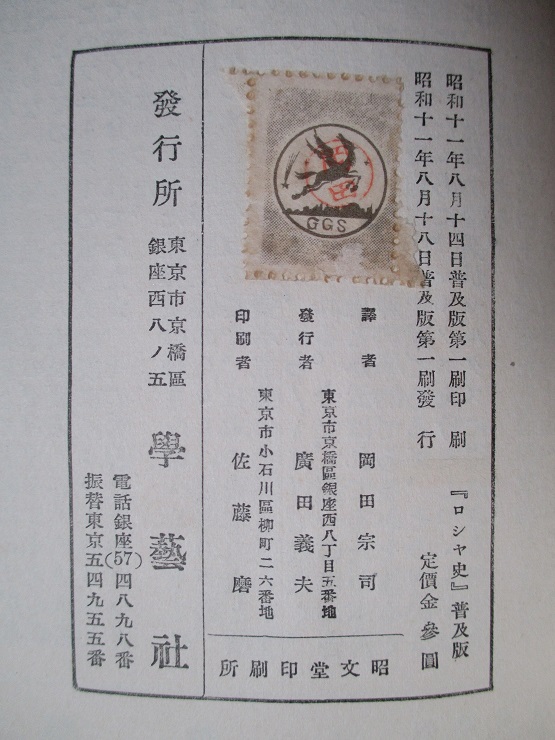 昭和十一年八月十四日普及版第一刷印刷
昭和十一年八月十八日普及版第一刷發行
『ロシヤ史』普及版
定價金參圓
GGS
譯者 岡田宗司
東京市京橋區銀座西八丁目五番地
發行者 廣田義夫
東京市小石川區柳町二六番地
印刷者 佐藤磨
昭文堂印刷所
發行所
東京市京橋區
銀座西八ノ五
學藝社
電話銀座(57)四八九八番
振替東京五四九五五番